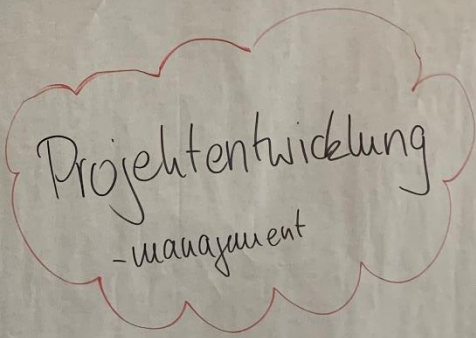 Projektentwicklung
-management